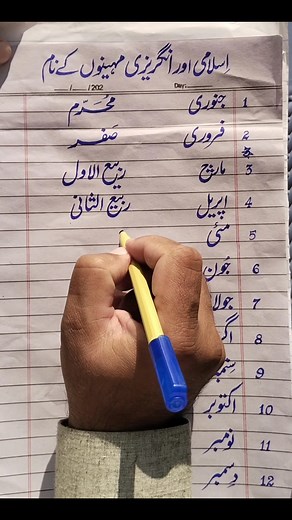 اِسلامی اور انگریزی مہینوں کے نام
___/___/202 Day:
1 جنوری محَرّم
2 فروری صَفر
3 مارچ ربیع الاول
4 اپریل ربیع الثانی
5 مئی
6 جُون
7 جولا
8 اگ
9 سِتمب
10 اکتوبر
11 نومبر
12 دِسمبر